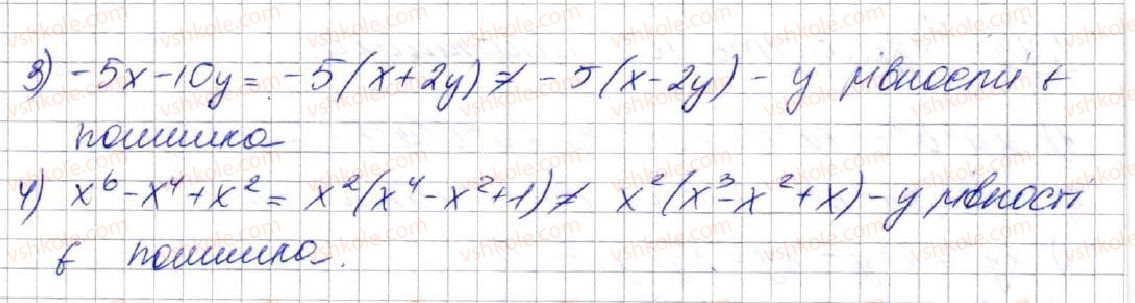 3) -5x-10y = -5(x+2y) ≠ -5(x-2y) - у рівності є
помилка
4) x⁶-x⁴+x² = x²(x⁴-x²+1) ≠ x²(x³-x²+x) - у рівності
є помилка.